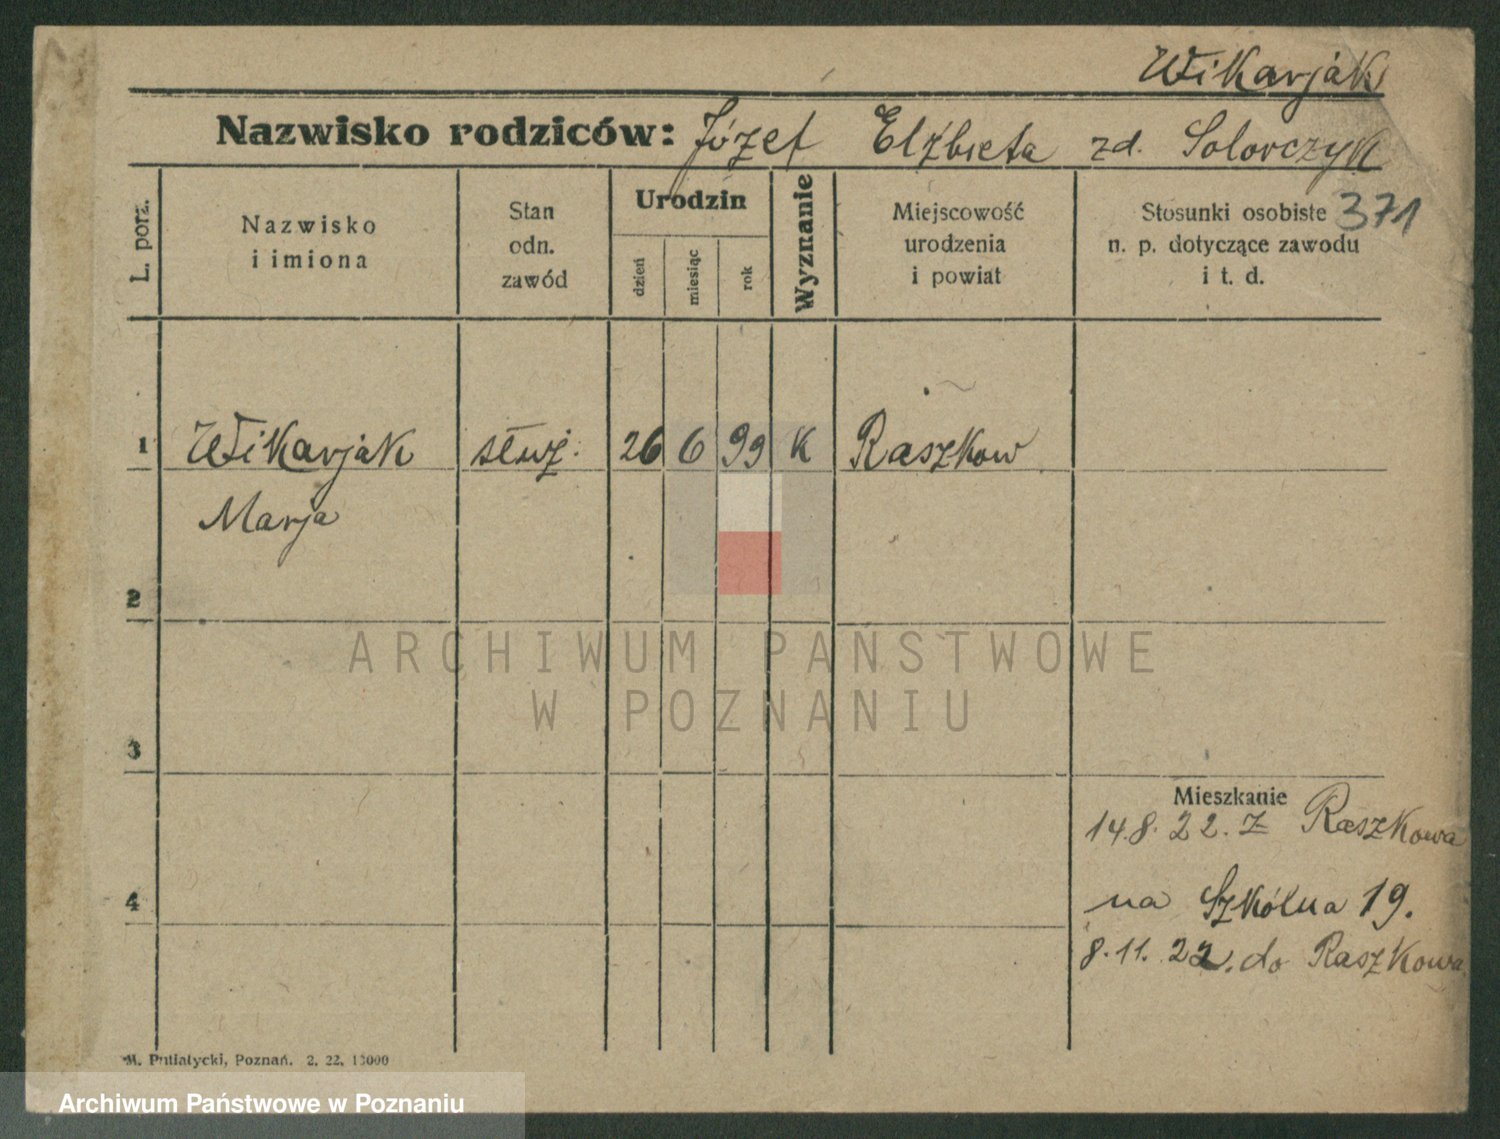 Wikarjak
Nazwisko rodziców: Józef Elżbieta zd. Solorczyk
371
L. porz.
Nazwisko
i imiona
Stan
odn.
zawód
Urodzin
dzień
miesiąc
rok
Wyznanie
Miejscowość
urodzenia
i powiat
Stosunki osobiste
n. p. dotyczące zawodu
i t. d.
1 Wikarjak służ. 26 6 99 K Raszkow
Marja
2
3
4
Mieszkanie
14.8.22. z Raszkowa
na Szkólna 19.
8.11.22. do Raszkowa
M. Putiatycki, Poznań. 2. 22. 15000
ARCHIWUM PAŃSTWOWE
W POZNANIU
Archiwum Państwowe w Poznaniu